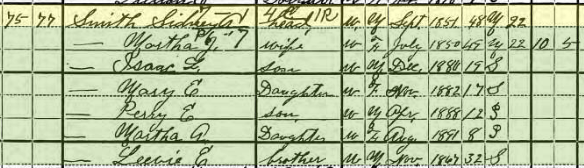 75 77 Smith Sidney A Head W M Sept 1851 48 M 22
— Martha J wife W F July 1850 49 M 22 10 5
— Isaac L son W M Dec 1880 19 S
— Mary E Daughter W F Nov 1882 17 S
— Perry E son W M Apr 1888 12 S
— Martha A Daughter W F Aug 1891 8 S
— E brother W M Nov 1867 32 S